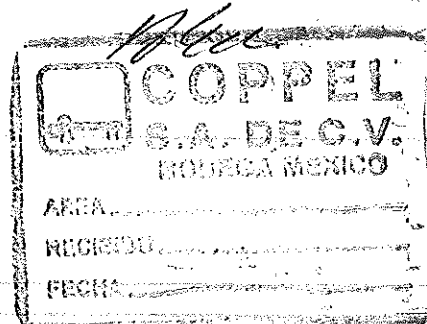 COPPEL
S.A. DE C.V.
BODEGA MEXICO
AREA
RECIBIDO
FECHA